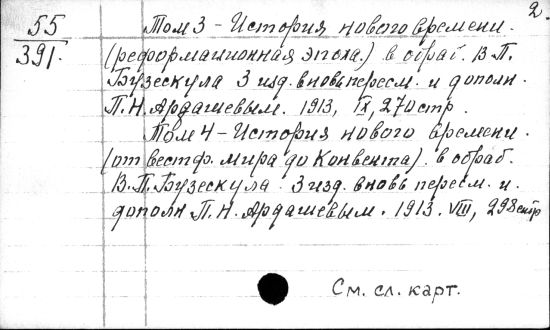 2.
55
391.
Том 3 - История нового времени.
(реформационная эпоха.) в обраб. В.П.
Бузескула 3 изд. вновь пересм. и дополн.
П.Н. Ардашевым. 1913, IX, 270 стр.
Том 4 - История нового времени.
(от вестф. мира до Конвента). в обраб.
В.П. Бузескула. 3 изд. вновь пересм. и.
дополн П.Н. Ардашевым. 1913. VIII, 298 стр
См. сл. карт.